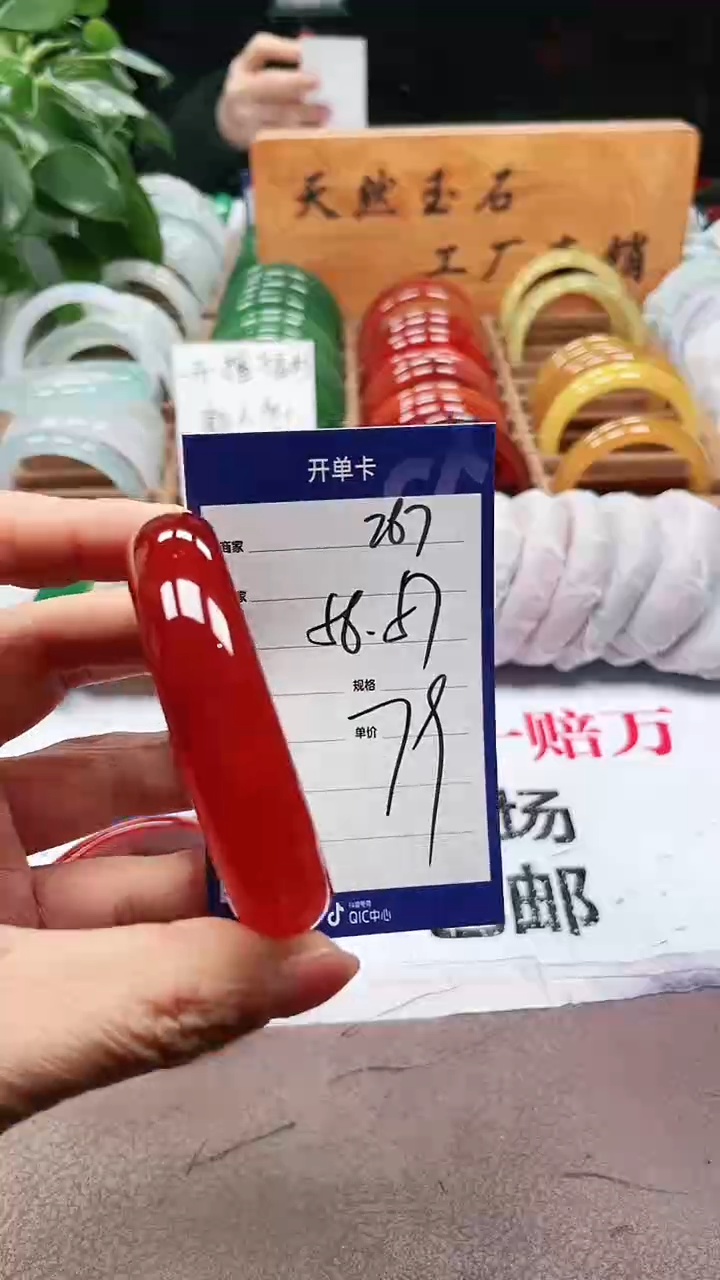 天然玉石
工厂直销
开单卡
商家 267
家 56-57
规格
单价 79
抖音电商
QIC中心
一赔万
场
邮